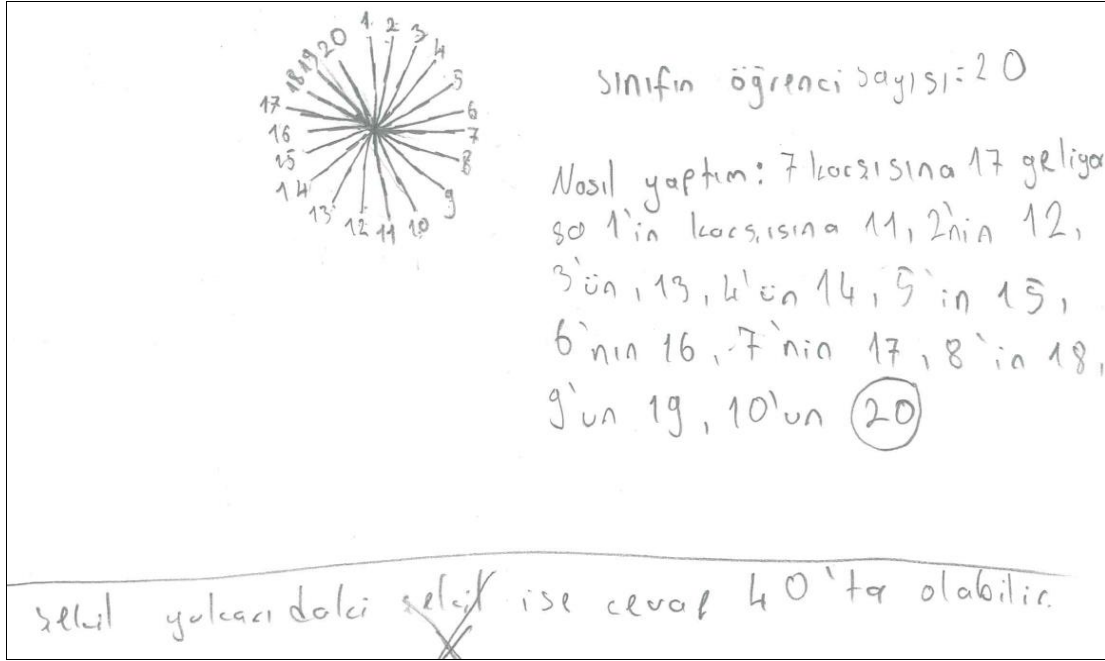 1 2 3 4 5 6 7 8 9 10 11 12 13 14 15 16 17 18 19 20
sınıfın öğrenci sayısı=20
Nasıl yaptım: 7 karşısına 17 geliyor
sa 1'in karşısına 11, 2'nin 12,
3'ün, 13, 4'ün 14, 5'in 15,
6'nın 16, 7'nin 17, 8'in 18,
9'un 19, 10'un 20
şekil yukarıdaki şekil ise cevap 40'ta olabilir.